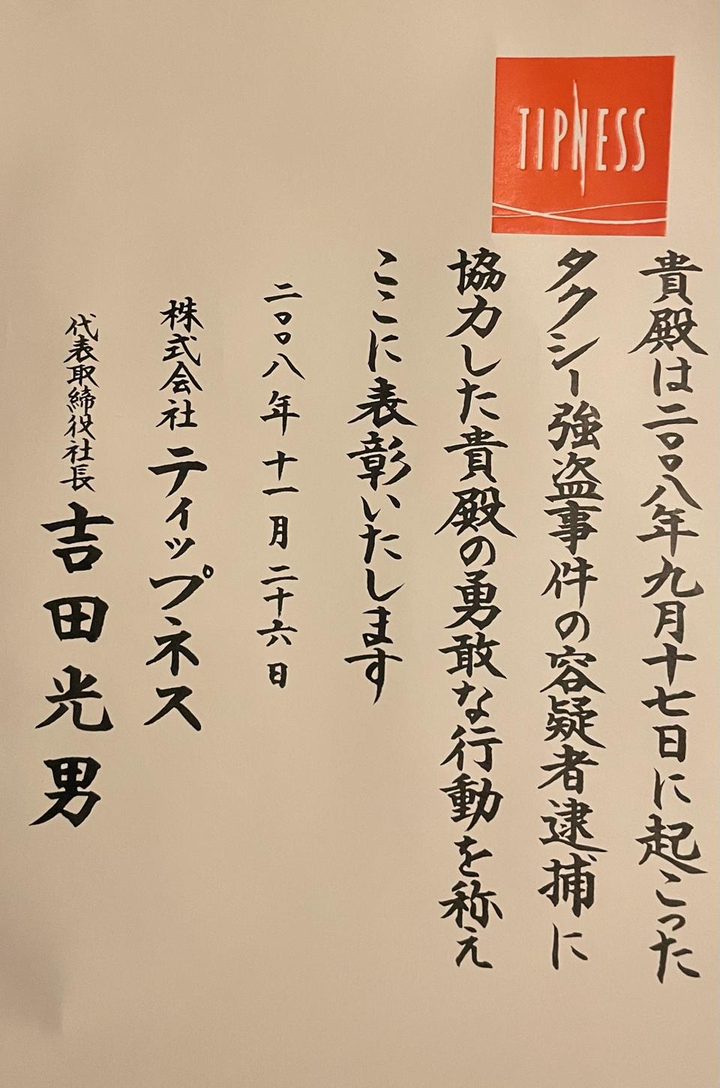 TIPNESS
貴殿は二〇〇八年九月十七日に起こった
タクシー強盗事件の容疑者逮捕に
協力した貴殿の勇敢な行動を称え
ここに表彰いたします
二〇〇八年十一月二十六日
株式会社ティップネス
代表取締役社長 吉田光男